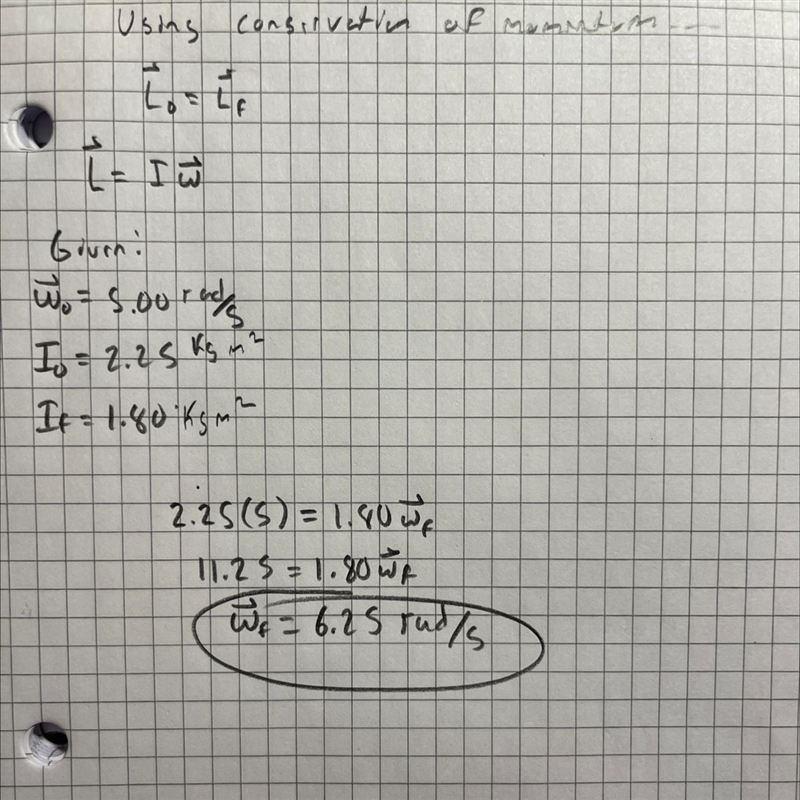 Using conservation of momentum...
L⃗₀ = L⃗f
L⃗ = I ω⃗
Given:
ω⃗₀ = 5.00 rad/s
I₀ = 2.25 Kg m²
If = 1.80 Kg m²
2.25(5) = 1.80 ω⃗f
11.25 = 1.80 ω⃗f
ω⃗f = 6.25 rad/s